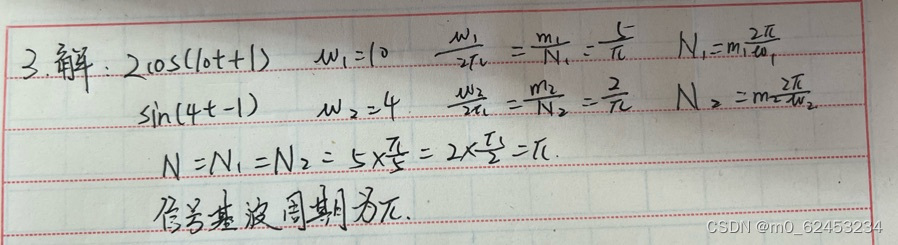 3.解: 2cos(10t+1) w₁=10 w₁/2π = m₁/N₁ = 5/π N₁=m₁2π/w₁
sin(4t-1) w₂=4 w₂/2π = m₂/N₂ = 2/π N₂=m₂2π/w₂
N=N₁=N₂=5×π/5=2×π/2=π.
信号基波周期为π.
CSDN @m0_62453234